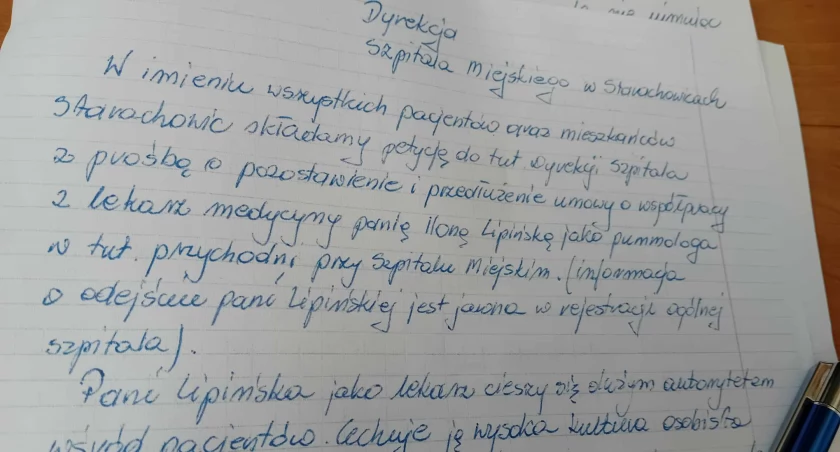 to nie umniejsz
Dyrekcja
Szpitala Miejskiego w Starachowicach
W imieniu wszystkich pacjentów oraz mieszkańców
Starachowic składamy petycję do tut. Dyrekcji Szpitala
z prośbą o pozostawienie i przedłużenie umowy o współpracy
z lekarz medycyny panią Iloną Lipińską jako pulmologa
w tut. przychodni przy Szpitalu Miejskim. (informacja
o odejściu pani Lipińskiej jest jawna w rejestracji ogólnej
szpitala).
Pani Lipińska jako lekarz cieszy się dużym autorytetem
wśród pacjentów. Cechuje ją wysoka kultura osobista